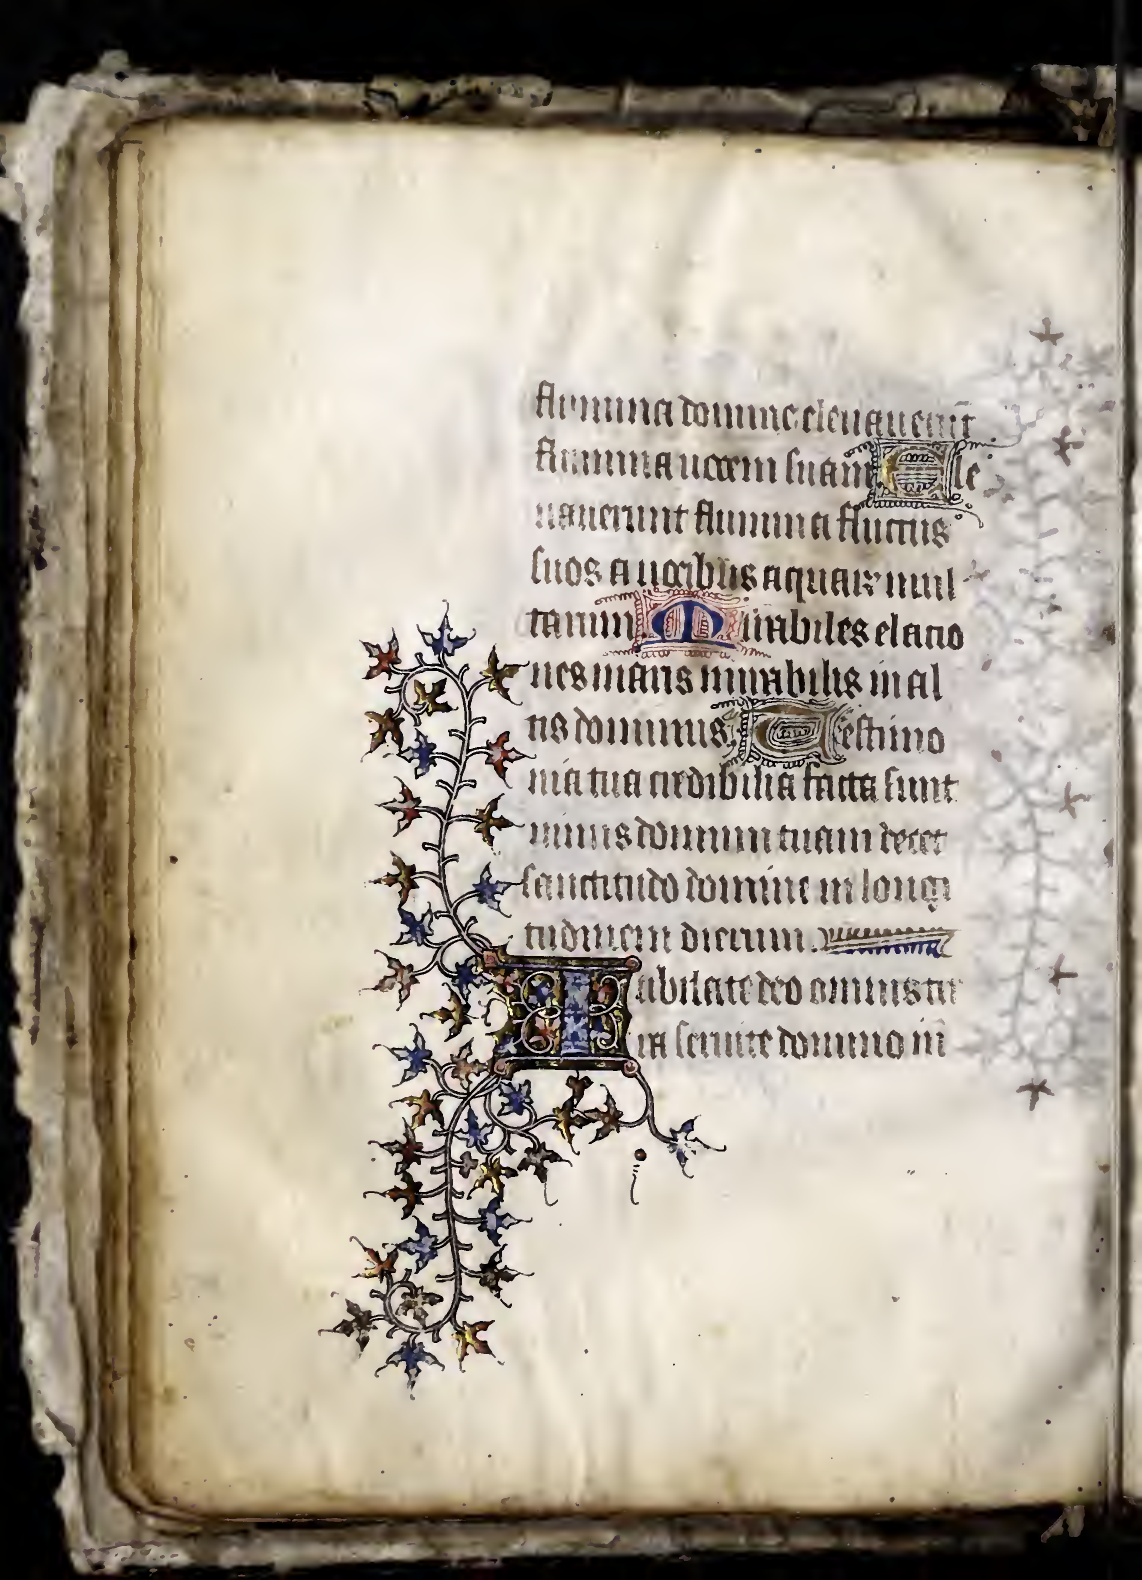 flumina domine eleuauerūt
flumina uocem suam Ele
uauerunt flumina fluctus
suos a uocibus aquar mul
tarum Mirabiles elatio
nes maris mirabilis in al
tis dominus. Testimo
nia tua credibilia facta sunt
nimis domum tuam decet
sanctitudo domine in longi
tudinem dierum.
Iubilate deo omnis ter
ra seruite domino in̄